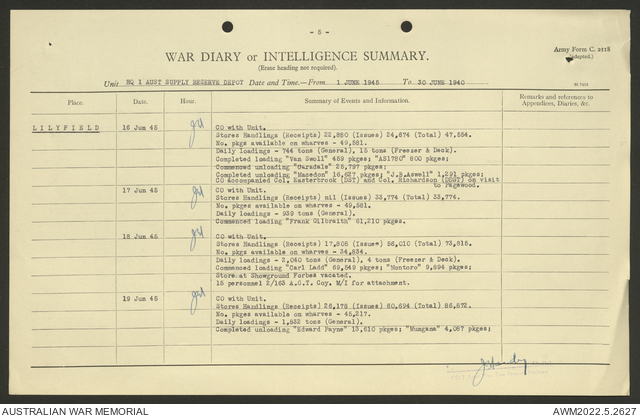 - 5 -
Army Form C. 2118
(Adapted.)
WAR DIARY or INTELLIGENCE SUMMARY.
(Erase heading not required).
Unit HQ 1 AUST SUPPLY RESERVE DEPOT Date and Time.—From 1 JUNE 1945 To 30 JUNE 1940
Place. Date. Hour. Summary of Events and Information. Remarks and references to Appendices, Diaries, &c.
LILYFIELD 16 Jun 45 CO with Unit.
Stores Handlings (Receipts) 22,880 (Issues) 24,674 (Total) 47,554.
No. pkgs available on wharves - 49,581.
Daily loadings - 744 tons (General), 15 tons (Freezer & Deck).
Completed loading "Van Swoll" 459 pkges; "AS1780" 800 pkges;
Commenced unloading "Garsdale" 25,797 pkges;
Completed unloading "Macedon" 16,627 pkges; "J.B.Aswell" 1,291 pkges;
CO accompanied Col. Easterbrook (DST) and Col. Richardson (DDST) on visit
to Pagewood.
17 Jun 45 CO with Unit.
Stores Handlings (Receipts) nil (Issues) 33,774 (Total) 33,774.
No. pkges available on wharves - 49,581.
Daily loadings - 939 tons (General).
Commenced loading "Frank Gilbraith" 61,210 pkges.
18 Jun 45 CO with Unit.
Stores Handlings (Receipts) 17,805 (Issues) 56,010 (Total) 73,815.
No. pkgs available on wharves - 34,834.
Daily loadings - 2,040 tons (General), 4 tons (Freezer & Deck).
Commenced loading "Carl Ladd" 69,549 pkges; "Montoro" 9,694 pkges;
Store at Showground Forbes vacated.
15 personnel 2/163 A.G.T. Coy. M/I for attachment.
19 Jun 45 CO with Unit.
Stores Handlings (Receipts) 26,178 (Issues) 60,694 (Total) 86,872.
No. pkges available on wharves - 45,217.
Daily loadings - 1,832 tons (General).
Completed unloading "Edward Payne" 13,610 pkges; "Mungana" 4,087 pkges;
AUSTRALIAN WAR MEMORIAL
AWM2022.5.2627